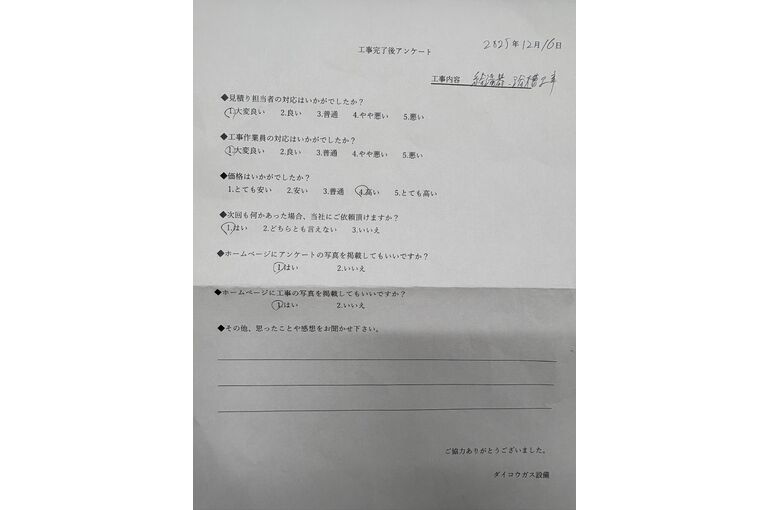 工事完了後アンケート
2025年12月16日
工事内容 給湯器・浴槽工事
◆見積り担当者の対応はいかがでしたか?
1.大変良い 2.良い 3.普通 4.やや悪い 5.悪い
◆工事作業員の対応はいかがでしたか?
1.大変良い 2.良い 3.普通 4.やや悪い 5.悪い
◆価格はいかがでしたか?
1.とても安い 2.安い 3.普通 4.高い 5.とても高い
◆次回も何かあった場合、当社にご依頼頂けますか?
1.はい 2.どちらとも言えない 3.いいえ
◆ホームページにアンケートの写真を掲載してもいいですか?
1.はい 2.いいえ
◆ホームページに工事の写真を掲載してもいいですか?
1.はい 2.いいえ
◆その他、思ったことや感想をお聞かせ下さい。
ご協力ありがとうございました。
ダイコウガス設備